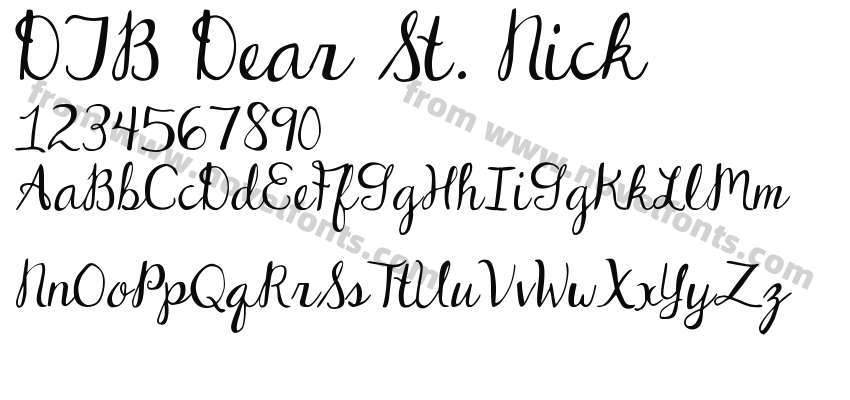 DJB Dear St. Nick
1234567890
AaBbCcDdEeFfGgHhIiGgKkLlMm
NnOoPpQqRrSsTtUuVvWwXxYyZz
from www.novelfonts.com
from www.novelfonts.com